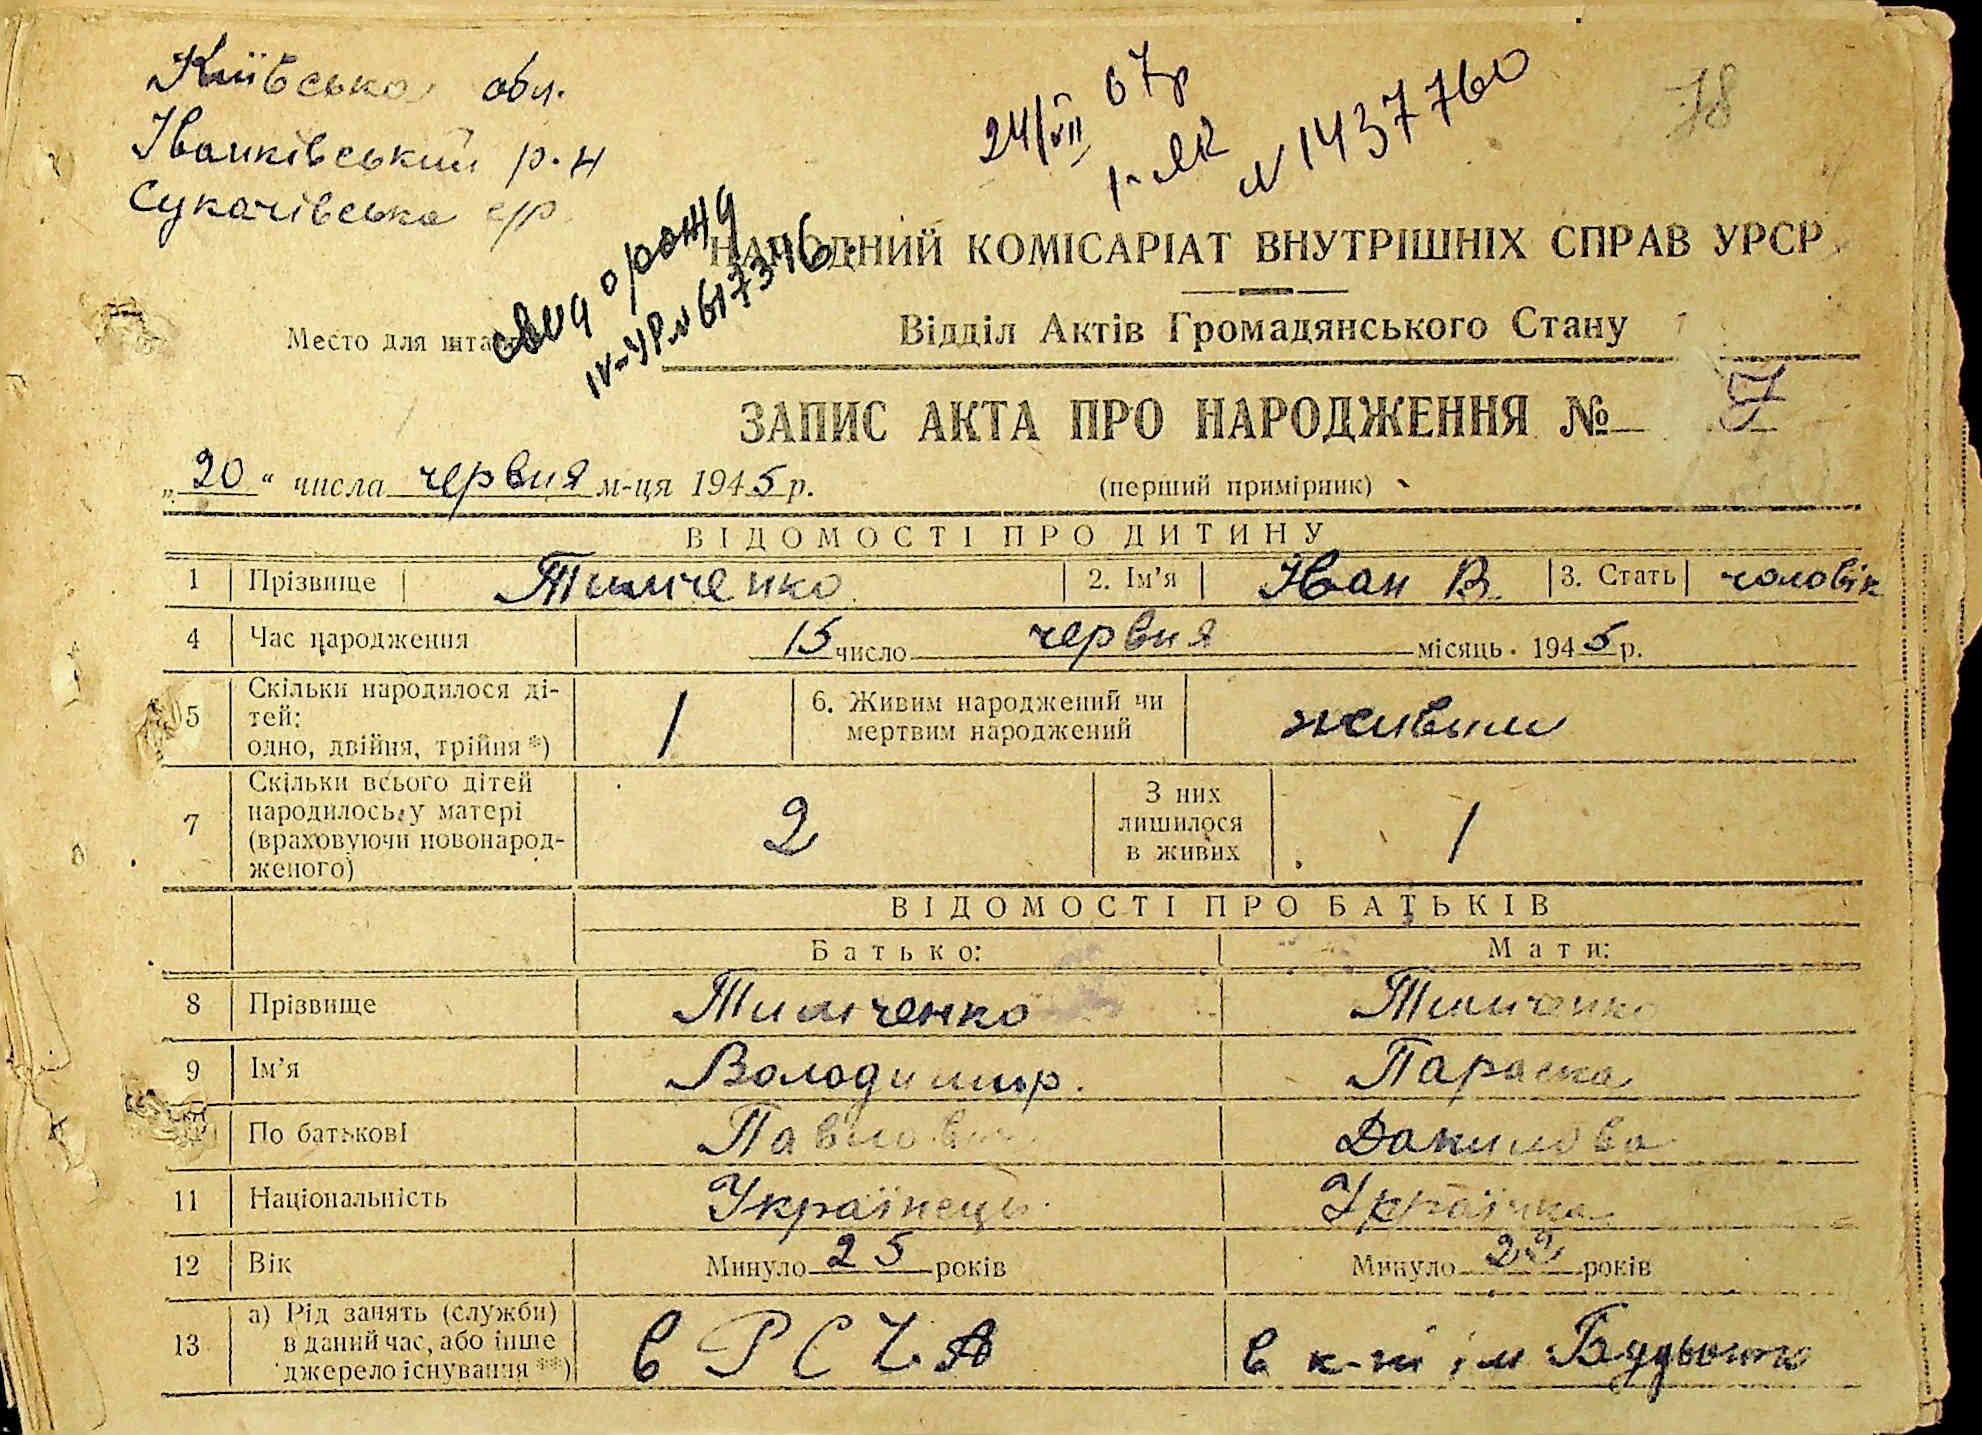 Київська обл.
Іванківський р-н
Сукачівська с/р
24/VII 67р
N 1437760
78
свид о рожд
IV-УР N 617346
НАРОДНИЙ КОМІСАРІАТ ВНУТРІШНІХ СПРАВ УРСР
Место для штампа
Відділ Актів Громадянського Стану
ЗАПИС АКТА ПРО НАРОДЖЕННЯ № 7
„20“ числа червня м-ця 1945 р.
(перший примірник)
ВІДОМОСТІ ПРО ДИТИНУ
1 Прізвище Тимченко 2. Ім’я Іван В. 3. Стать чоловік
4 Час народження 15 число червня місяць 1945 р.
5 Скільки народилося ді-
тей:
одно, двійня, трійня *) 1
6. Живим народжений чи
мертвим народжений живим
7 Скільки всього дітей
народилось у матері
(враховуючи новонарод-
женого) 2
З них
лишилося
в живих 1
ВІДОМОСТІ ПРО БАТЬКІВ
Батько: Мати:
8 Прізвище Тимченко Тимченко
9 Ім’я Володимир. Параска
По батькові Павлович Данилова
11 Національність Українець Українка
12 Вік Минуло 25 років Минуло 22 років
13 а) Рід занять (служби)
в даний час, або інше
джерело існування **)
в РСЧА в к-пі ім Будьоного